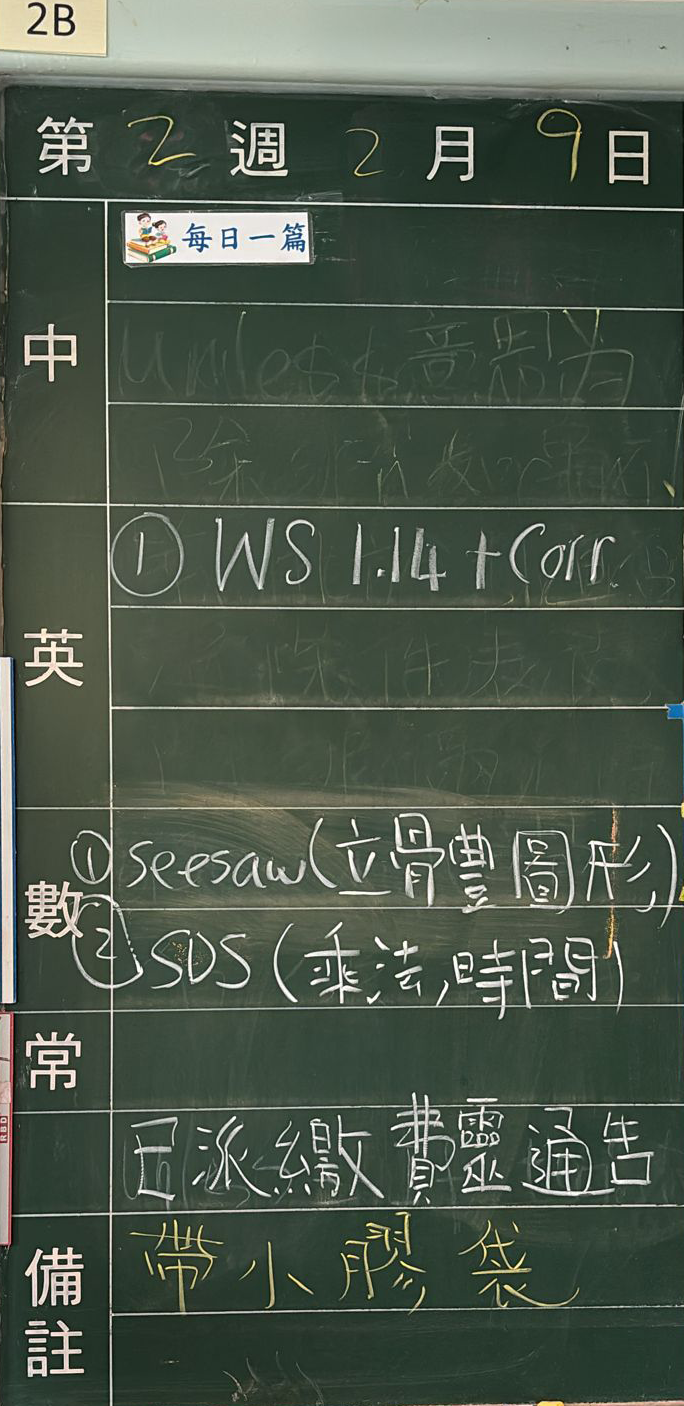 2B
第 2 週 2 月 9 日
中
每日一篇
英
① WS 1.14 + Corr.
數
① seesaw (立體圖形)
② SDS (乘法,時間)
常
已派繳費靈通告
備註
帶小膠袋
RBD